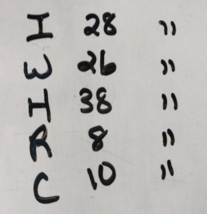 I 28 "
W 26 "
I 38 "
R 8 "
C 10 "